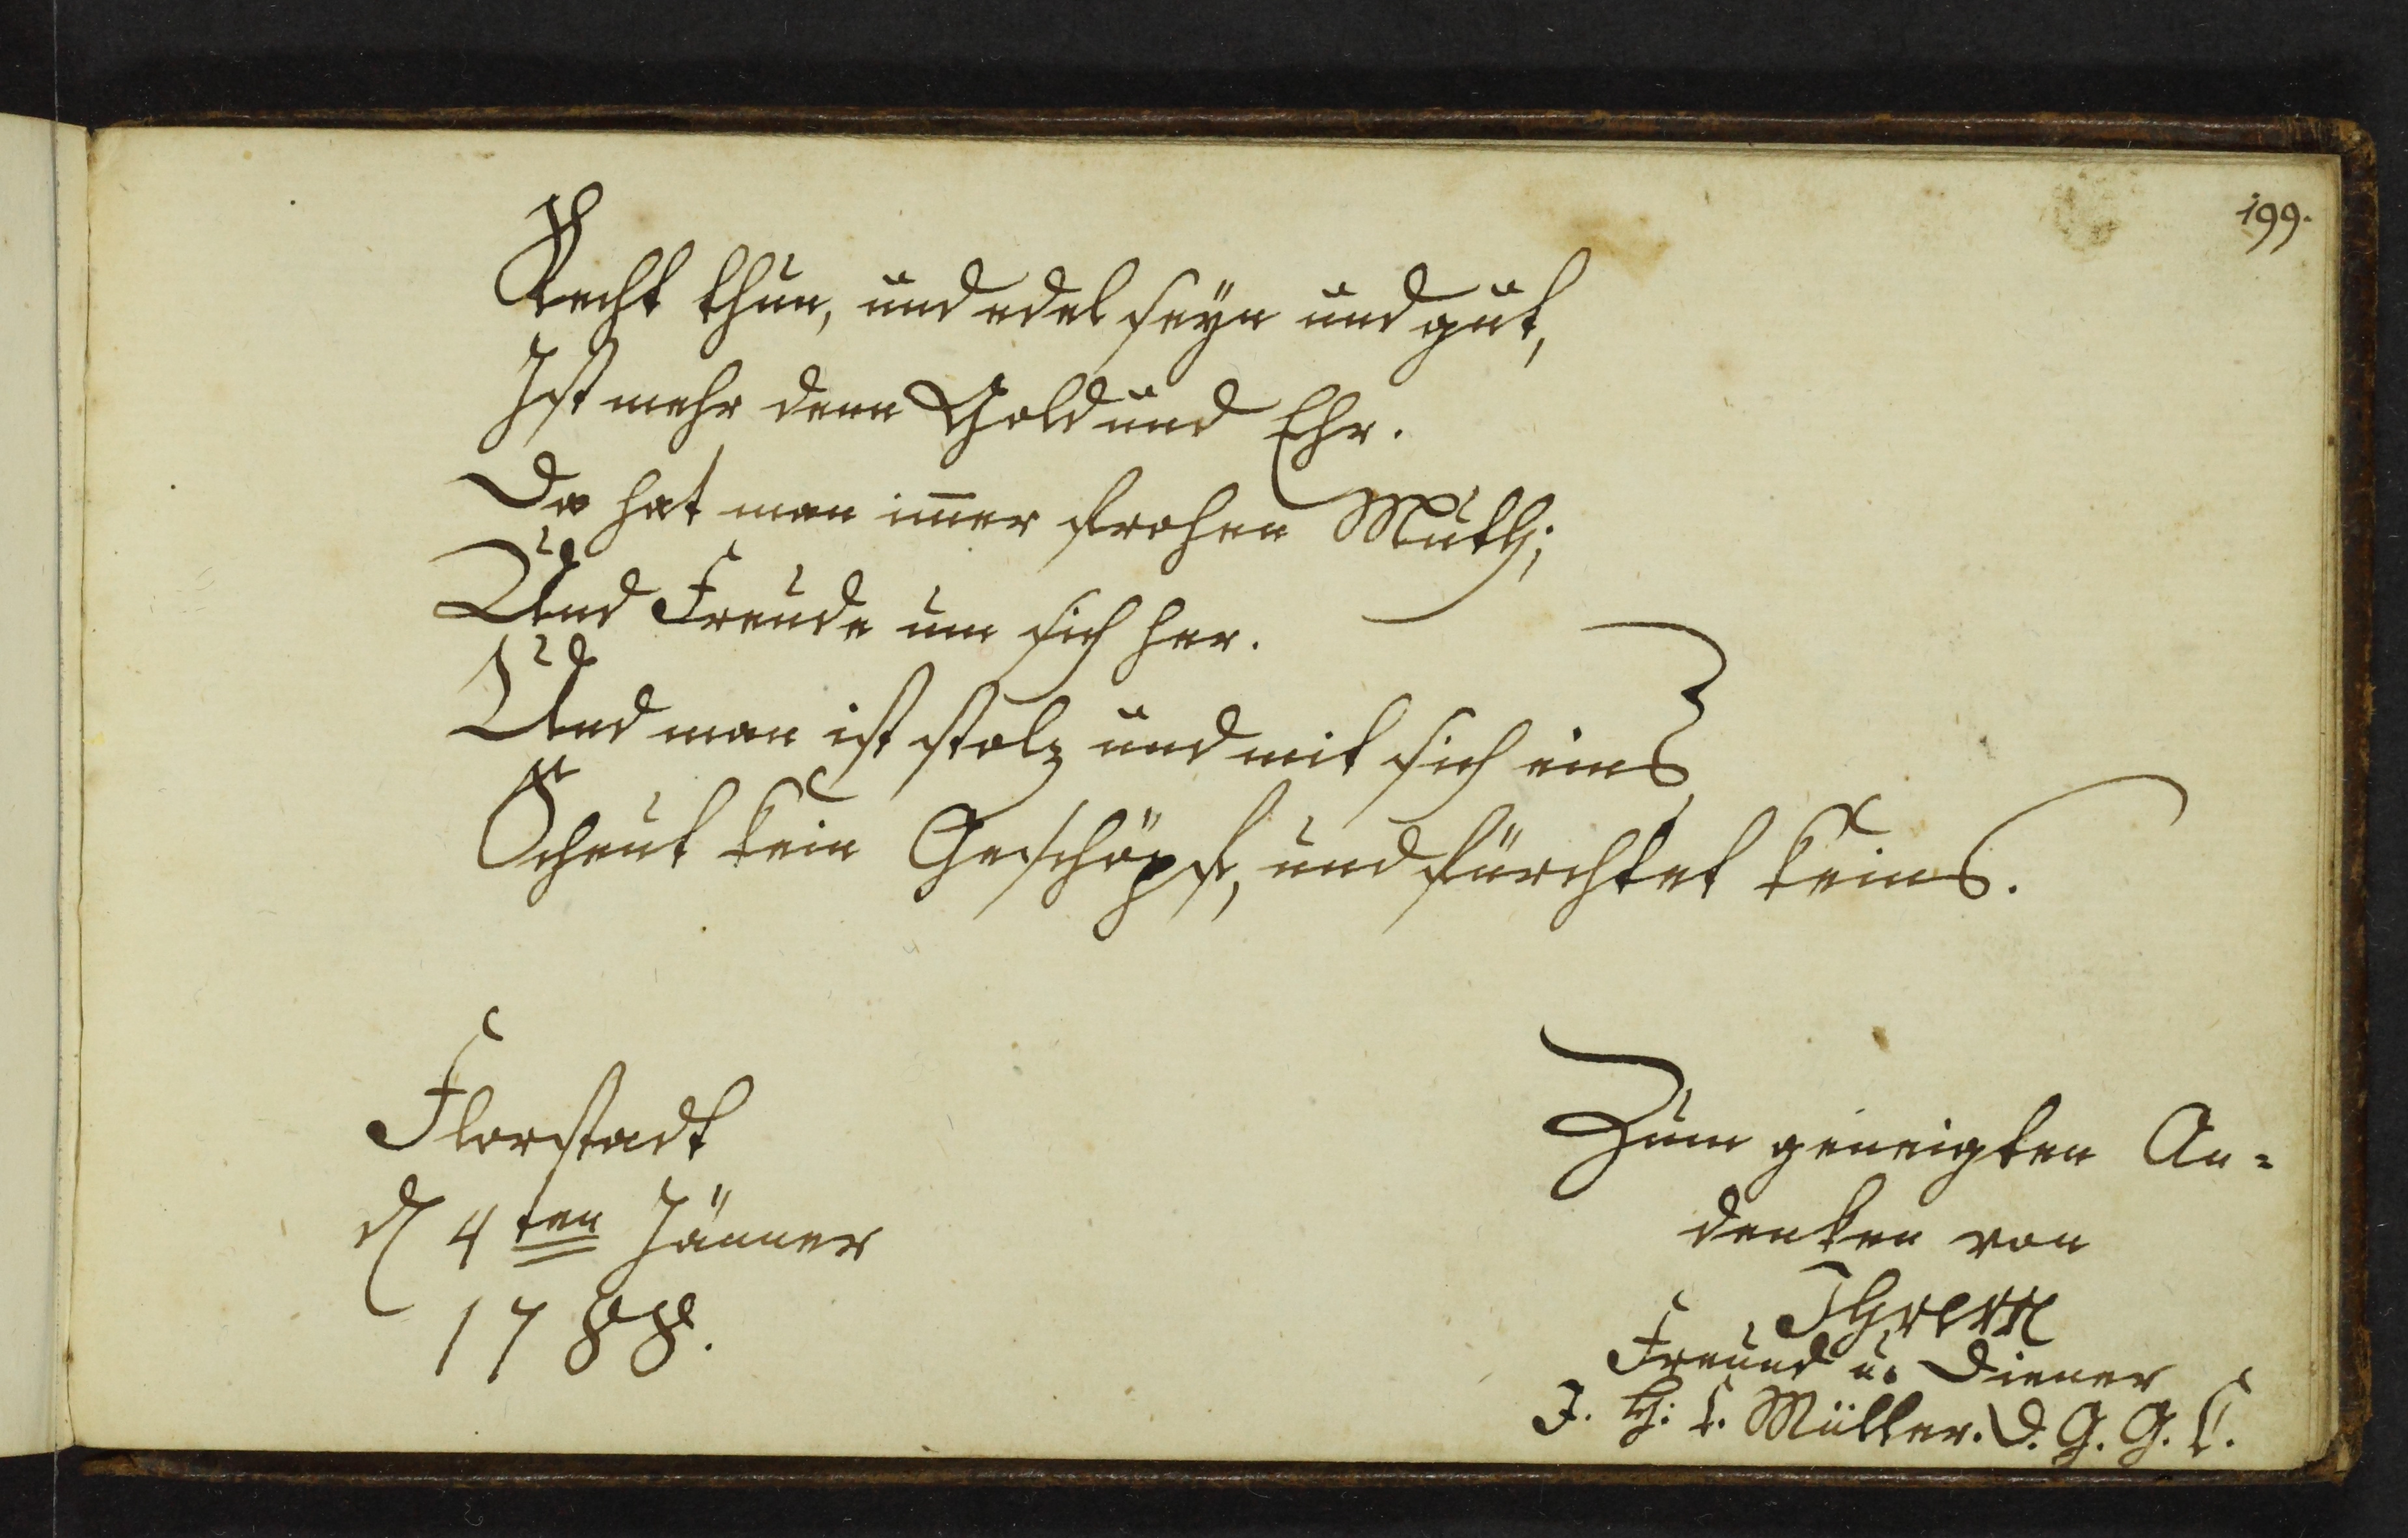 199.
Recht thun, und edel seyn und gut,
Ist mehr denn Gold und Ehr.
Da hat man im̄er frohen Muth;
Und Freude um sich her.
Und man ist stolz und mit sich eins,
Scheut kein Geschöpf, und fürchtet keins.
Florstadt
d 4ten Jänner
1788.
Zum geneigten An=
denken von
Ihrem
Freund u. Diener
J. H: C. Müller. D. G. G. C.